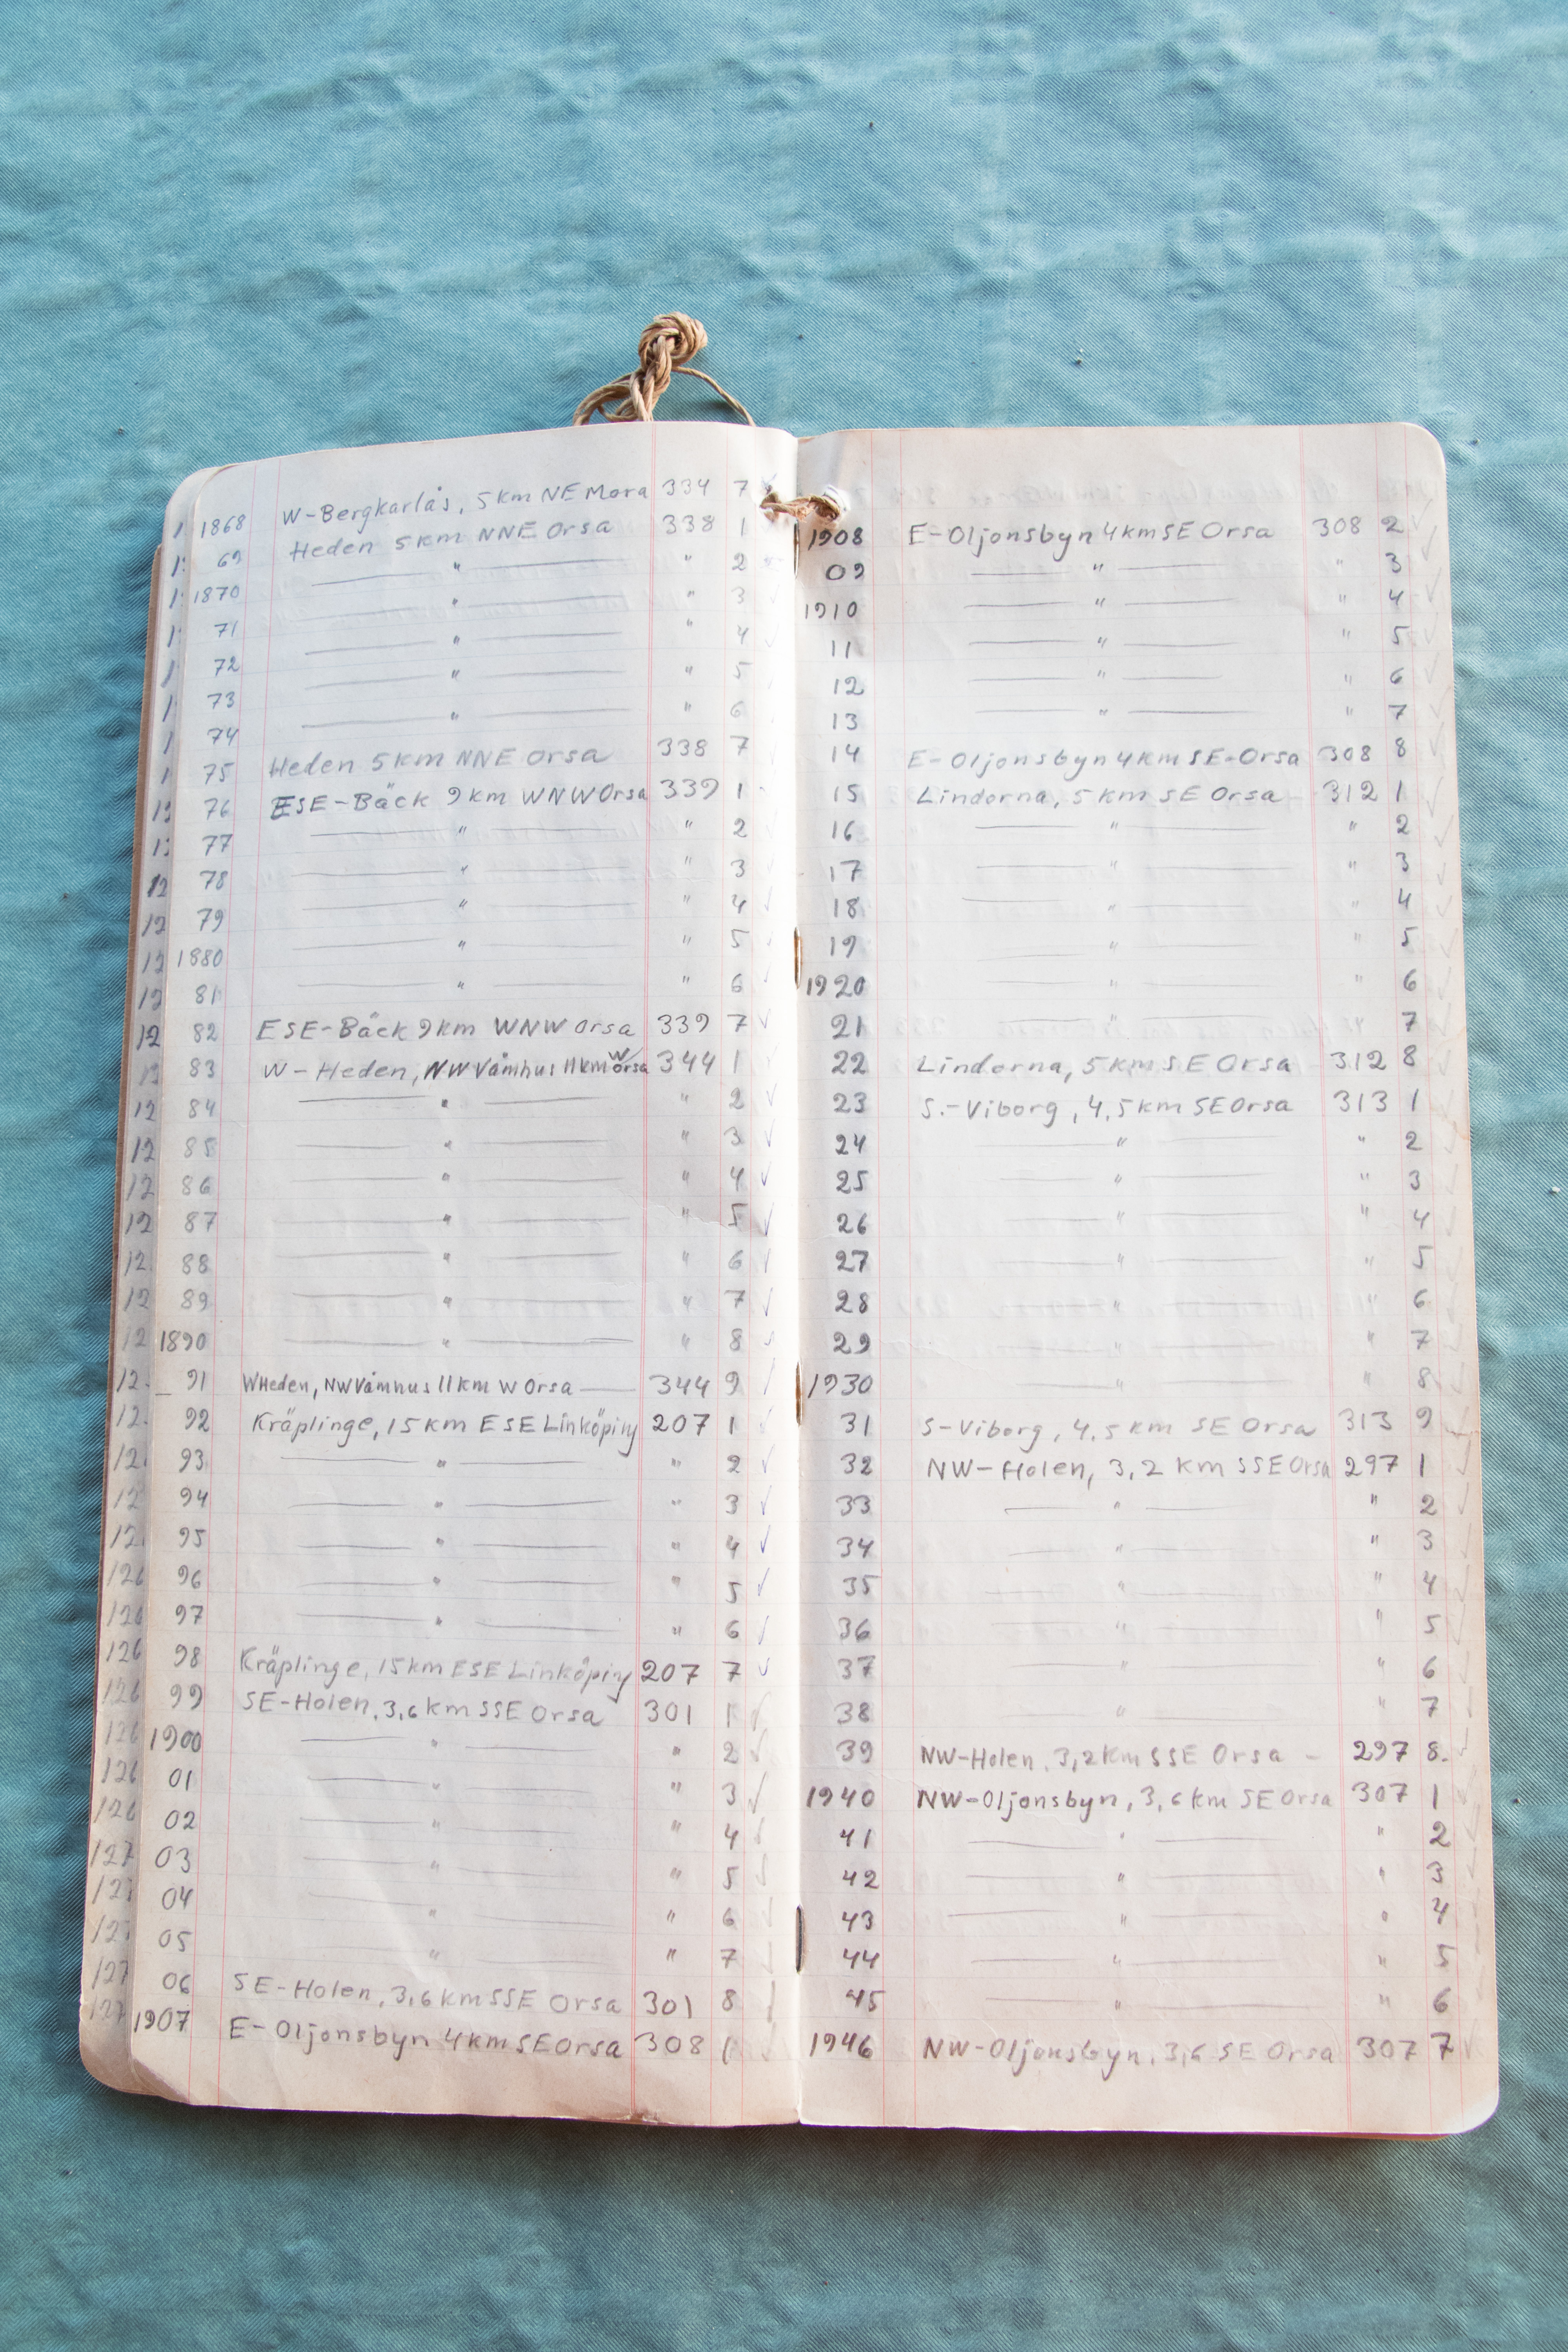 1868 W-Bergkarlås, 5 km NE Mora 334 7
69 Heden 5 km NNE Orsa 338 1
1870 — " — " 2
71 — " — " 3
72 — " — " 4
73 — " — " 5
74 — " — " 6
75 Heden 5 km NNE Orsa 338 7
76 ESE-Bäck 9 km WNW Orsa 339 1
77 — " — " 2
78 — " — " 3
79 — " — " 4
1880 — " — " 5
81 — " — " 6
82 ESE-Bäck 9 km WNW Orsa 339 7
83 W-Heden, NW Våmhus 11 km W Orsa 344 1
84 — " — " 2
85 — " — " 3
86 — " — " 4
87 — " — " 5
88 — " — " 6
89 — " — " 7
1890 — " — " 8
91 W Heden, NW Våmhus 11 km W Orsa — 344 9
92 Kräplinge, 15 km ESE Linköping 207 1
93 — " — " 2
94 — " — " 3
95 — " — " 4
96 — " — " 5
97 — " — " 6
98 Kräplinge, 15 km ESE Linköping 207 7
99 SE-Holen, 3,6 km SSE Orsa 301 1
1900 — " — " 2
01 — " — " 3
02 — " — " 4
03 — " — " 5
04 — " — " 6
05 — " — " 7
06 SE-Holen, 3,6 km SSE Orsa 301 8
1907 E-Oljonsbyn 4 km SE Orsa 308 1
1908 E-Oljonsbyn 4 km SE Orsa 308 2
09 — " — " 3
1910 — " — " 4
11 — " — " 5
12 — " — " 6
13 — " — " 7
14 E-Oljonsbyn 4 km SE-Orsa 308 8
15 Lindorna, 5 km SE Orsa 312 1
16 — " — " 2
17 — " — " 3
18 — " — " 4
19 — " — " 5
1920 — " — " 6
21 — " — 7
22 Lindorna, 5 km SE Orsa 312 8
23 S.-Viborg, 4,5 km SE Orsa 313 1
24 — " — " 2
25 — " — " 3
26 — " — " 4
27 — " — " 5
28 — " — " 6
29 — " — " 7
1930 — " — " 8
31 S-Viborg, 4,5 km SE Orsa 313 9
32 NW-Holen, 3,2 km SSE Orsa 297 1
33 — " — " 2
34 — " — " 3
35 — " — " 4
36 — " — " 5
37 — " — " 6
38 — " — " 7
39 NW-Holen, 3,2 km SSE Orsa — 297 8.
1940 NW-Oljonsbyn, 3,6 km SE Orsa 307 1
41 — " — " 2
42 — " — " 3
43 — " — " 4
44 — " — " 5
45 — " — " 6
1946 NW-Oljonsbyn, 3,6 SE Orsa 307 7